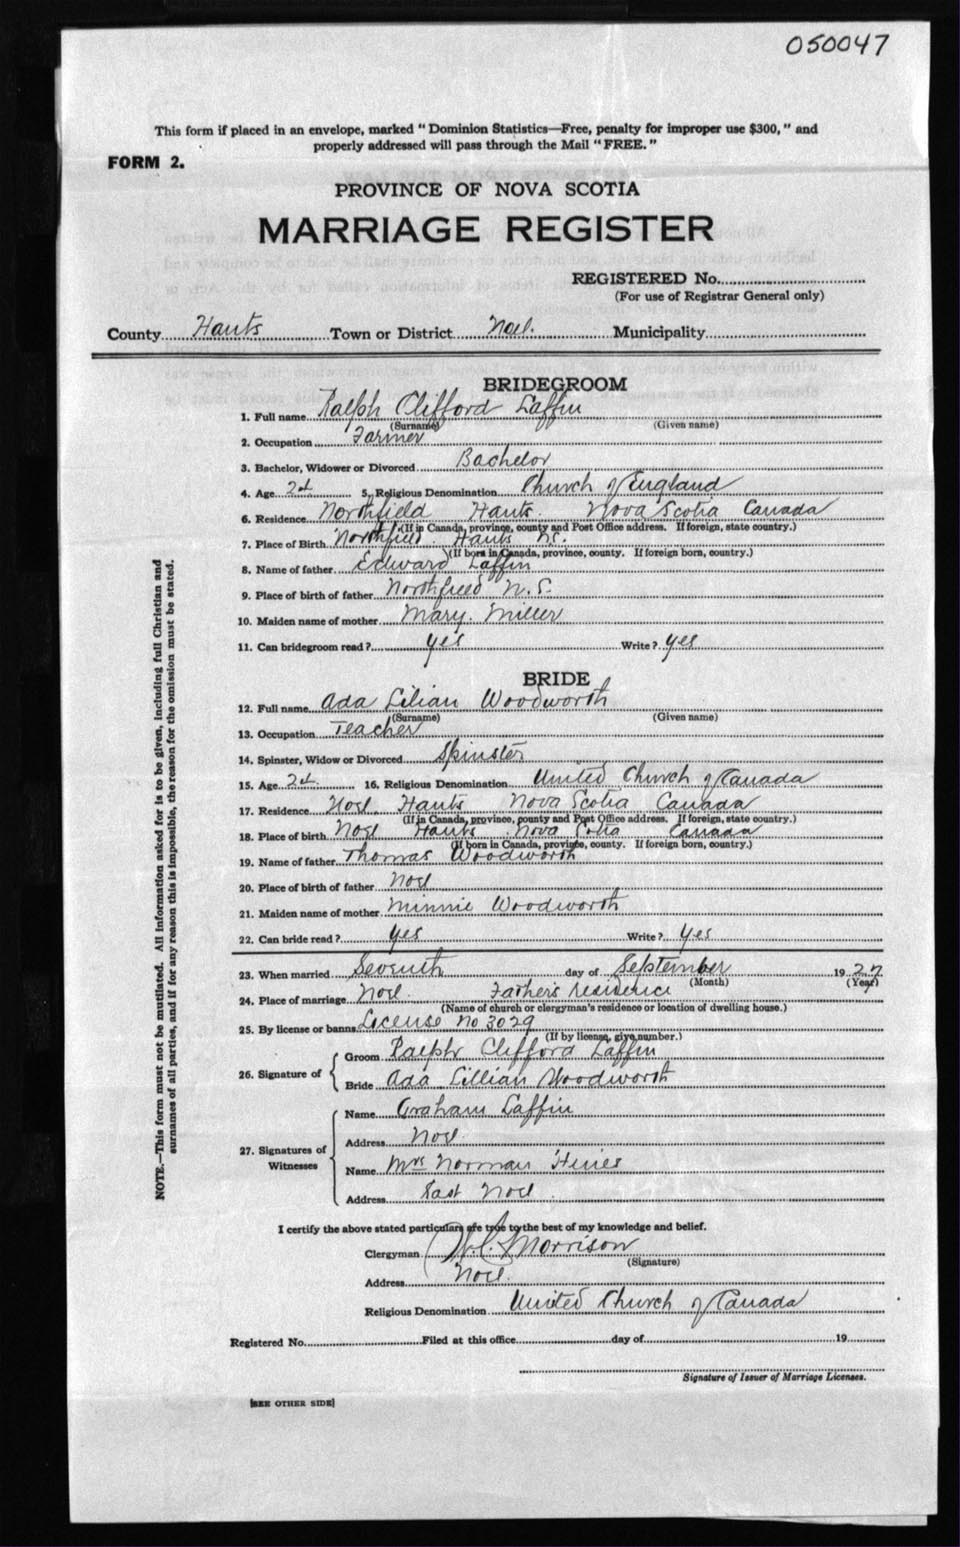 050047
This form if placed in an envelope, marked "Dominion Statistics—Free, penalty for improper use $300," and
properly addressed will pass through the Mail "FREE."
FORM 2.
PROVINCE OF NOVA SCOTIA
MARRIAGE REGISTER
REGISTERED No.
(For use of Registrar General only)
County Hants Town or District Noel. Municipality
BRIDEGROOM
1. Full name Ralph Clifford Laffin
(Surname) (Given name)
2. Occupation Farmer
3. Bachelor, Widower or Divorced Bachelor
4. Age 24 5. Religious Denomination Church of England
6. Residence Northfield Hants. Nova Scotia Canada
(If in Canada, province, county and Post Office address. If foreign, state country.)
7. Place of Birth Northfield. Hants N.S.
(If born in Canada, province, county. If foreign born, country.)
8. Name of father Edward Laffin
9. Place of birth of father Northfield N.S.
10. Maiden name of mother Mary. Miller
11. Can bridegroom read? yes Write? yes
BRIDE
12. Full name Ada Lilian Woodworth
(Surname) (Given name)
13. Occupation Teacher
14. Spinster, Widow or Divorced Spinster
15. Age 24 16. Religious Denomination United Church of Canada
17. Residence Noel Hants Nova Scotia Canada
(If in Canada, province, county and Post Office address. If foreign, state country.)
18. Place of birth Noel Hants Nova Scotia Canada
(If born in Canada, province, county. If foreign born, country.)
19. Name of father Thomas Woodworth
20. Place of birth of father Noel
21. Maiden name of mother Minnie Woodworth
22. Can bride read? yes Write? yes
23. When married Seventh day of September 1927
(Month) (Year)
24. Place of marriage Noel. Father's residence
(Name of church or clergyman's residence or location of dwelling house.)
25. By license or banns License No 3029
(If by license, give number.)
26. Signature of
Groom Ralph Clifford Laffin
Bride Ada Lillian Woodworth
27. Signatures of Witnesses
Name Graham Laffin
Address Noel
Name Mrs Norman
Address East Noel.
I certify the above stated particulars are true to the best of my knowledge and belief.
Clergyman W.C. Morrison
(Signature)
Address Noel.
Religious Denomination United Church of Canada
Registered No. Filed at this office day of 19
Signature of Issuer of Marriage Licenses.
[SEE OTHER SIDE]
NOTE.—This form must not be mutilated. All information asked for is to be given, including full Christian and
surnames of all parties, and if for any reason this is impossible, the reason for the omission must be stated.